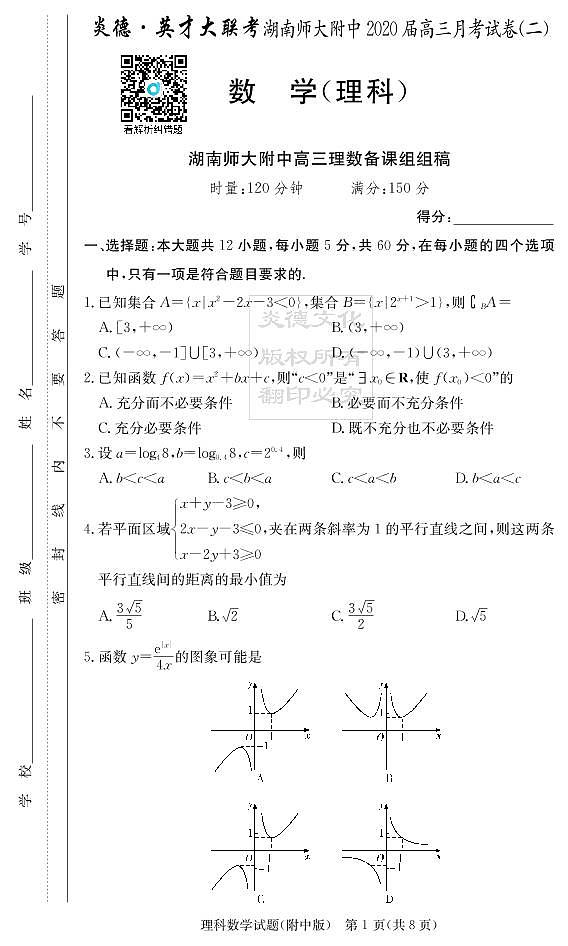 炎德·英才大联考湖南师大附中2020届高三月考试卷(二)
数 学(理科)
看解析纠错题
湖南师大附中高三理数备课组组稿
时量:120分钟 满分:150分
得分:
一、选择题:本大题共12小题,每小题5分,共60分,在每小题的四个选项
中,只有一项是符合题目要求的.
1.已知集合A={x|x²-2x-3<0},集合B={x|2ˣ⁺¹>1},则∁ʙA=
A.[3,+∞) B.(3,+∞)
C.(-∞,-1]∪[3,+∞) D.(-∞,-1)∪(3,+∞)
2.已知函数f(x)=x²+bx+c,则“c<0”是“∃x₀∈R,使f(x₀)<0”的
A.充分而不必要条件 B.必要而不充分条件
C.充分必要条件 D.既不充分也不必要条件
3.设a=log₄8,b=log₀.₄8,c=2⁰·⁴,则
A.b<c<a B.c<b<a C.c<a<b D.b<a<c
x+y-3≥0,
4.若平面区域{2x-y-3≤0,夹在两条斜率为1的平行直线之间,则这两条
x-2y+3≥0
平行直线间的距离的最小值为
A.3√5/5 B.√2 C.3√5/2 D.√5
5.函数y=e^|x|/4x的图象可能是
y 1 O 1 x A
y 1 O 1 x B
y 1 O 1 x C
y 1 O 1 x D
理科数学试题(附中版) 第1页(共8页)
学 校
班 级
姓 名
学 号
密 封 线 内 不 要 答 题
炎德文化
版权所有
翻印必究